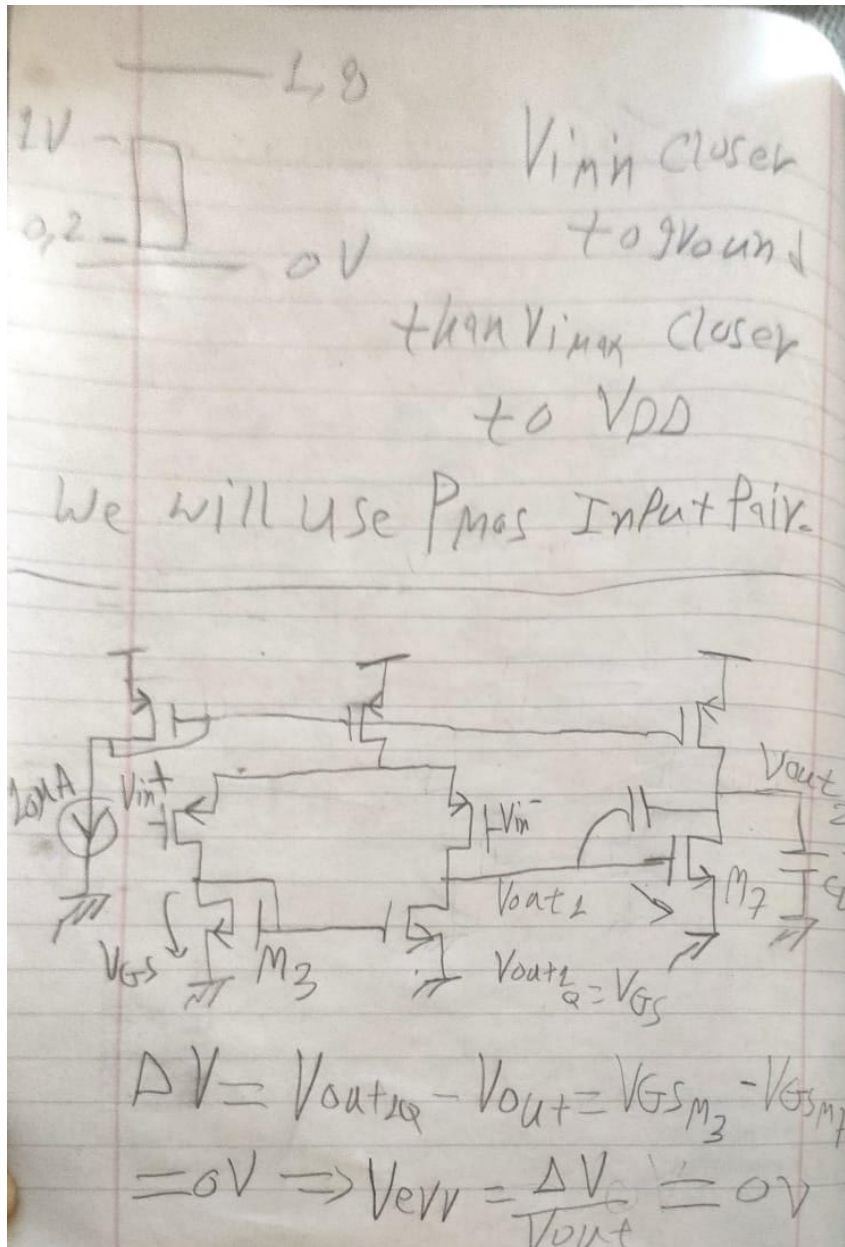 1,8
1V
Vimin Closer
0,2
to ground
0V
than Vimax Closer
to VDD
We will use Pmos Input Pair.
Vout
2
Vin+
Vin-
M7
Vout1
VGS
M3
Vout1Q = VGS
ΔV = Vout1Q - Vout = VGSM3 - VGSM7
= 0V ⇒ Verr = ΔV/Vout = 0V